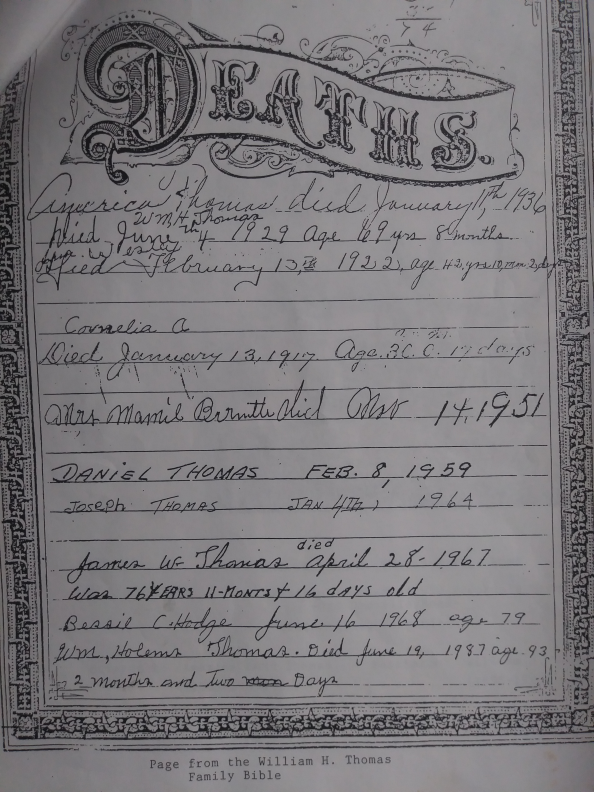 34
74
DEATHS.
America Thomas died January 11th, 1936
WM H Thomas
Died June 4th 1929 Age 69 yrs 8 months
Died February 13, th 1922, age 42, yrs 10, mon. 2, days
Cornelia A
Died January 13, 1917 Age 17 days
Mrs Mamie died Nov 14, 1951
DANIEL THOMAS FEB. 8, 1959
JOSEPH THOMAS JAN 4TH, 1964
died
James W Thomas April 28-1967
Was 76 YEARS 11-MONTS & 16 days old
Bessie C. Hodge June 16 1968 age 79
WM, Holems Thomas. Died June 19, 1987 age 93
2 months and Two Days
Page from the William H. Thomas
Family Bible